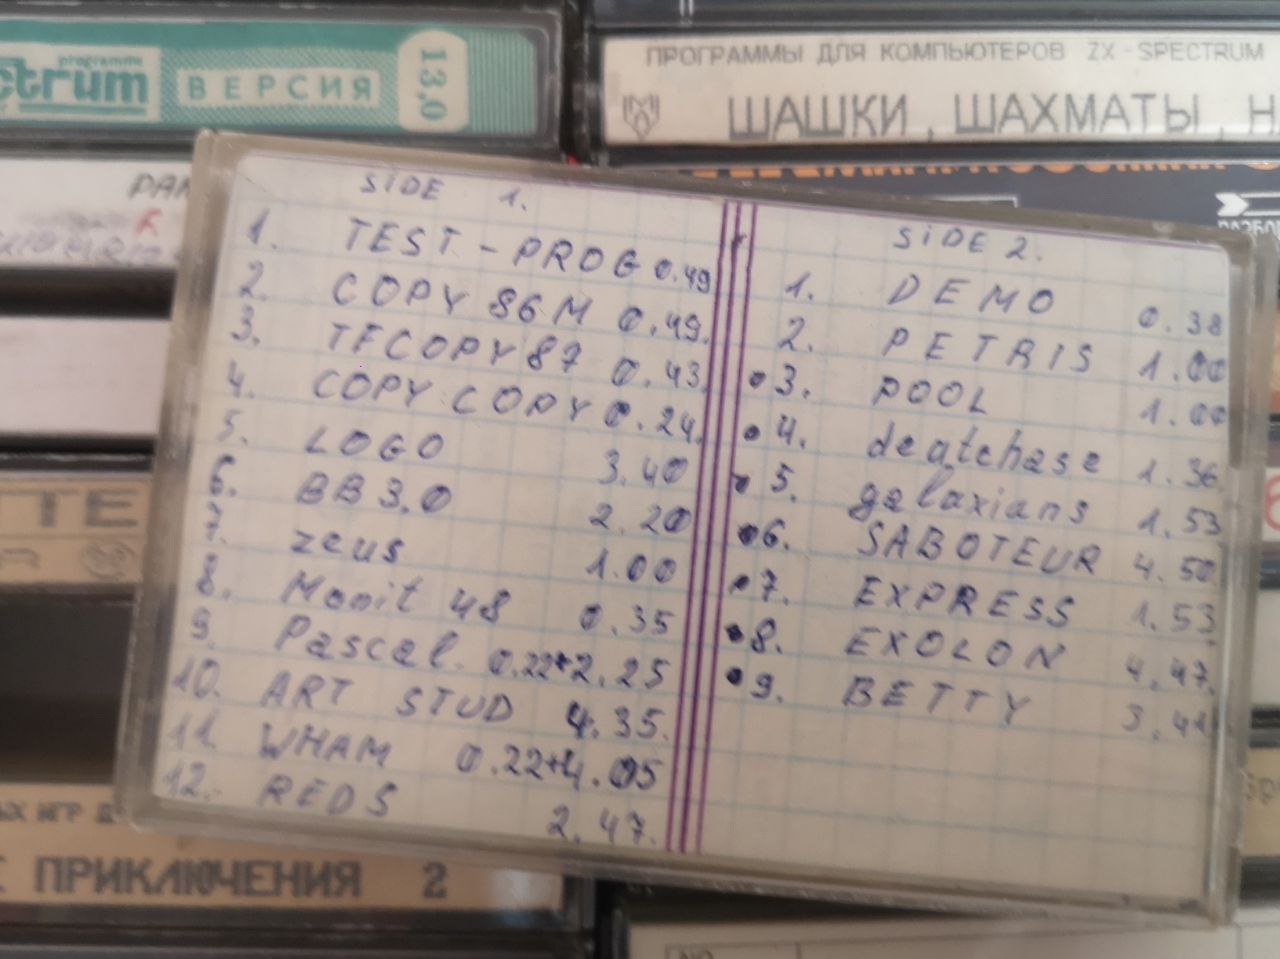 programme
ctrum ВЕРСИЯ 13,0
ПРОГРАММЫ ДЛЯ КОМПЬЮТЕРОВ ZX-SPECTRUM
ШАШКИ, ШАХМАТЫ, Н
SIDE 1.
1. TEST-PROG 0.49
2. COPY 86M 0.49.
3. TFCOPY87 0.43.
4. COPY COPY 0.24.
5. LOGO 3.40
6. BB3.0 2.20
7. zeus 1.00
8. Monit 48 0.35
9. Pascal. 0.22+2.25
10. ART STUD 4.35.
11. WHAM 0.22+4.05
12. REDS 2.47.
SIDE 2.
1. DEMO 0.38
2. PETRIS 1.00
3. POOL 1.00
4. deatchase 1.36
5. galaxians 1.53
6. SABOTEUR 4.50
7. EXPRESS 1.53
8. EXOLON 4.47.
9. BETTY 3.41
TTE
ЫХ ИГР Д
ПРИКЛЮЧЕНИЯ 2